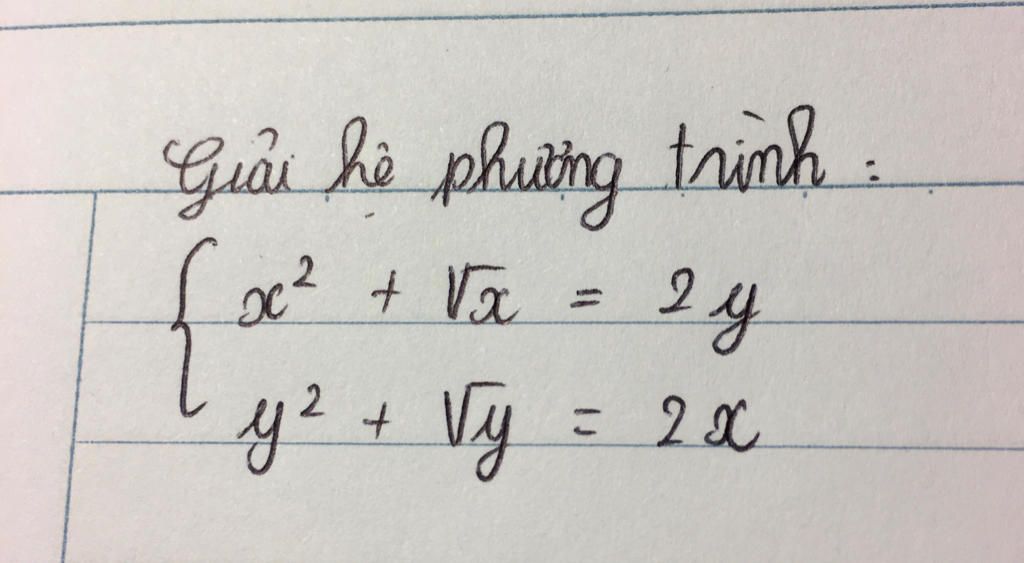 Giải hệ phương trình :
x² + √x = 2y
y² + √y = 2x